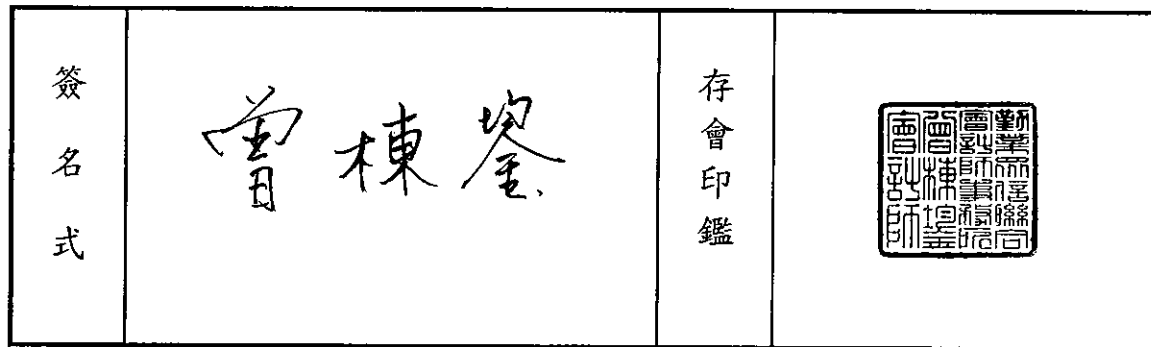 簽名式
曾棟鋆
存會印鑑
勤業眾信聯合
會計師事務所
曾棟鋆
會計師